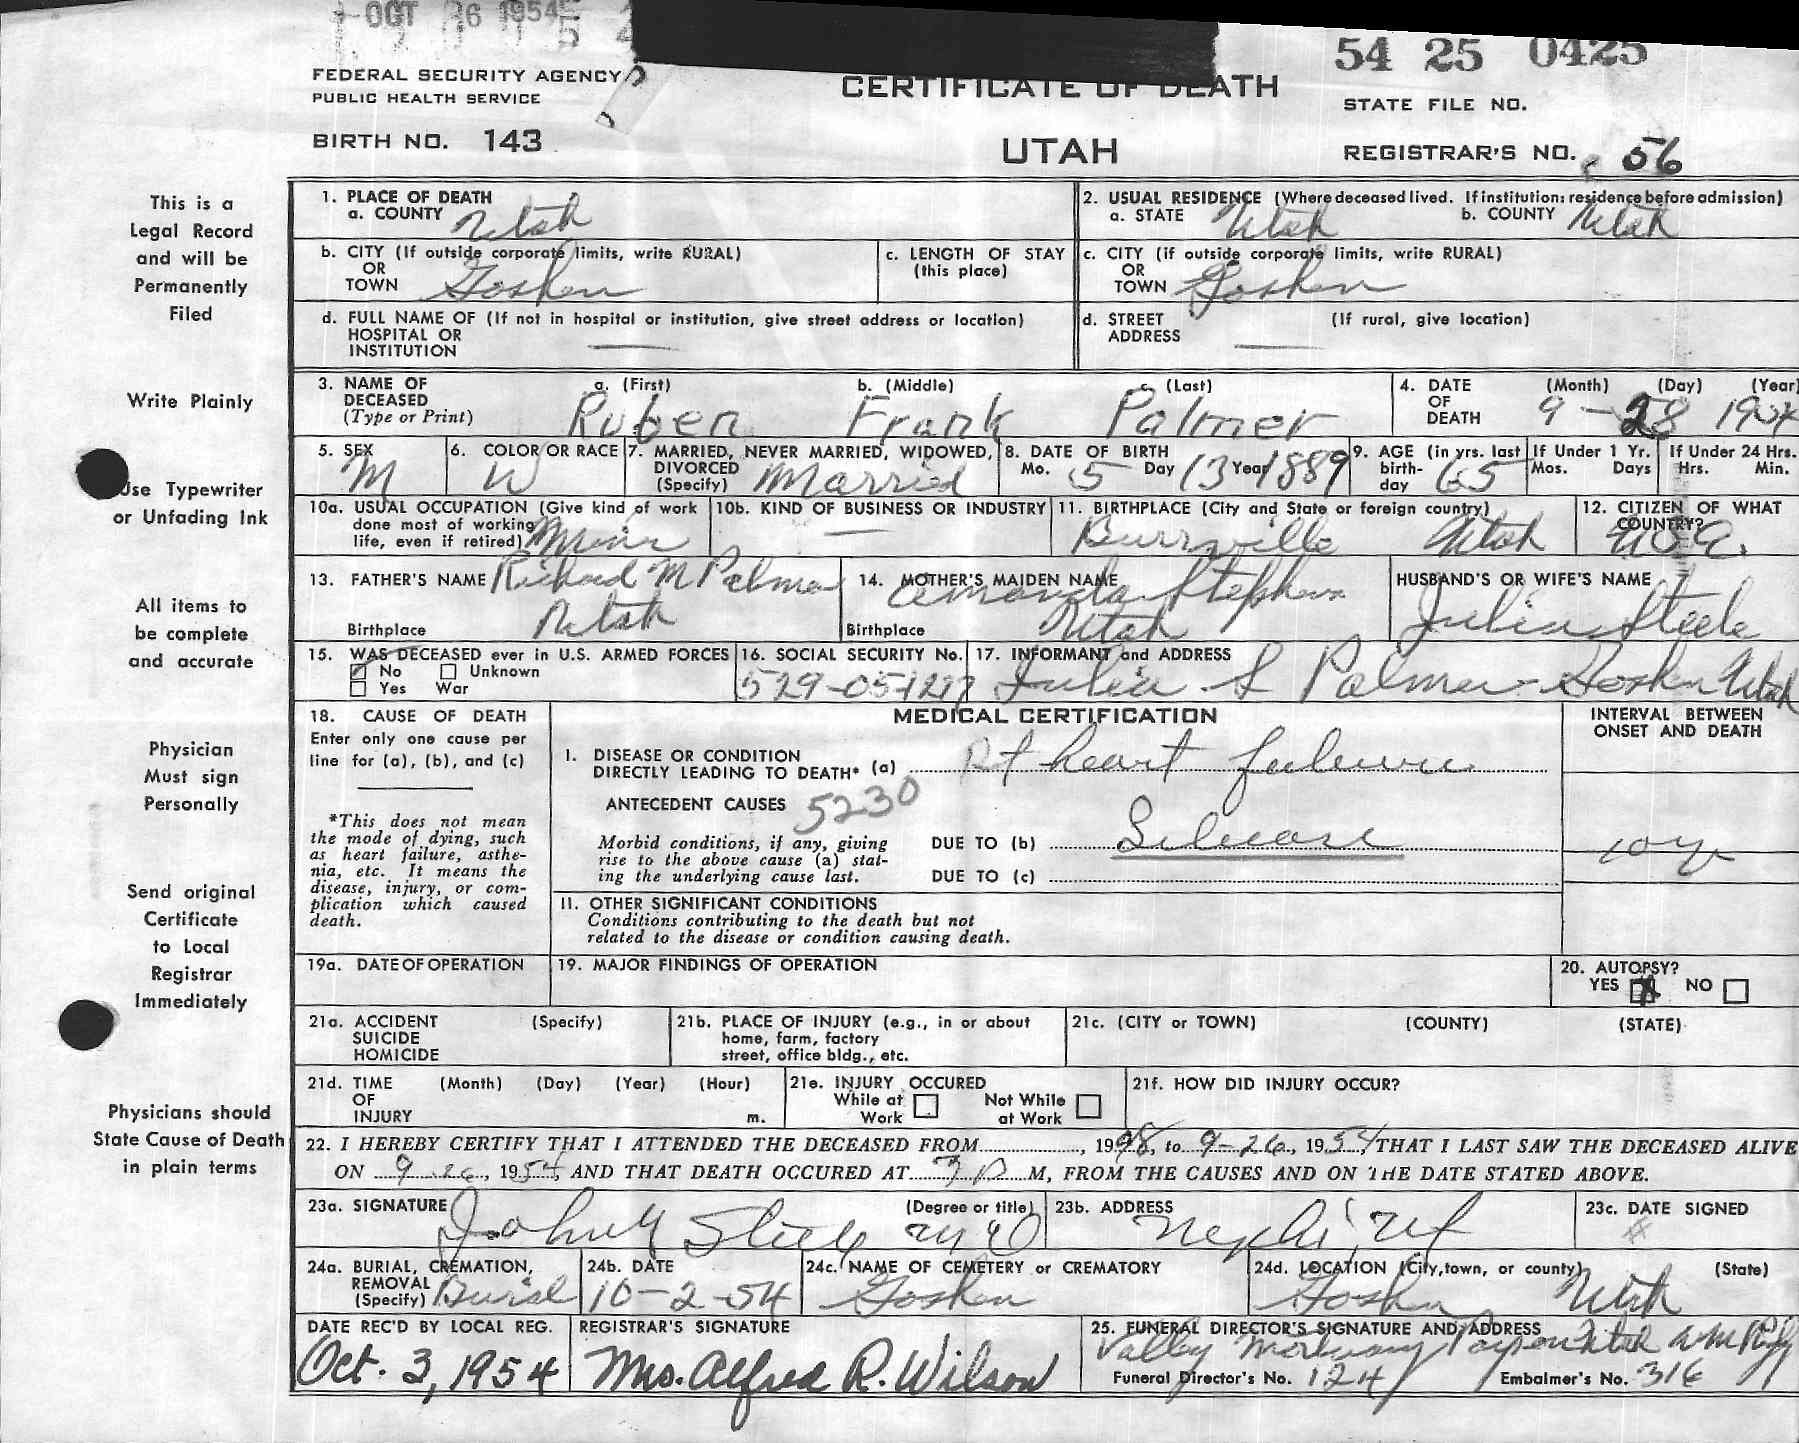 OCT 6 1954
54 25 0425
FEDERAL SECURITY AGENCY
PUBLIC HEALTH SERVICE
CERTIFICATE OF DEATH
STATE FILE NO.
BIRTH NO. 143
UTAH
REGISTRAR'S NO. 56
This is a
Legal Record
and will be
Permanently
Filed
Write Plainly
Use Typewriter
or Unfading Ink
All items to
be complete
and accurate
Physician
Must sign
Personally
Send original
Certificate
to Local
Registrar
Immediately
Physicians should
State Cause of Death
in plain terms
1. PLACE OF DEATH
a. COUNTY Utah
2. USUAL RESIDENCE (Where deceased lived. If institution: residence before admission)
a. STATE Utah b. COUNTY Utah
b. CITY (If outside corporate limits, write RURAL)
OR
TOWN Goshen
c. LENGTH OF STAY
(this place)
c. CITY (if outside corporate limits, write RURAL)
OR
TOWN Goshen
d. FULL NAME OF (If not in hospital or institution, give street address or location)
HOSPITAL OR
INSTITUTION —
d. STREET (If rural, give location)
ADDRESS —
3. NAME OF a. (First) b. (Middle) c. (Last)
DECEASED
(Type or Print) Ruben Frank Palmer
4. DATE (Month) (Day) (Year)
OF
DEATH 9-28 1954
5. SEX M
6. COLOR OR RACE W
7. MARRIED, NEVER MARRIED, WIDOWED,
DIVORCED
(Specify) Married
8. DATE OF BIRTH
Mo. 5 Day 13 Year 1889
9. AGE (in yrs. last
birth-
day 65
If Under 1 Yr.
Mos. Days
If Under 24 Hrs.
Hrs. Min.
10a. USUAL OCCUPATION (Give kind of work
done most of working
life, even if retired) Miner
10b. KIND OF BUSINESS OR INDUSTRY
—
11. BIRTHPLACE (City and State or foreign country)
Burrville Utah
12. CITIZEN OF WHAT
COUNTRY?
U.S.A.
13. FATHER'S NAME Richard M Palmer
Birthplace Utah
14. MOTHER'S MAIDEN NAME
Amanda Stephens
Birthplace Utah
HUSBAND'S OR WIFE'S NAME
Julia Steele
15. WAS DECEASED ever in U.S. ARMED FORCES
No Unknown
Yes War
16. SOCIAL SECURITY No.
17. INFORMANT and ADDRESS
Julia S Palmer - Goshen Utah
18. CAUSE OF DEATH
Enter only one cause per
line for (a), (b), and (c)
*This does not mean
the mode of dying, such
as heart failure, asthe-
nia, etc. It means the
disease, injury, or com-
plication which caused
death.
MEDICAL CERTIFICATION
INTERVAL BETWEEN
ONSET AND DEATH
I. DISEASE OR CONDITION
DIRECTLY LEADING TO DEATH* (a) Rt heart failure
ANTECEDENT CAUSES 5230
Morbid conditions, if any, giving
rise to the above cause (a) stat-
ing the underlying cause last.
DUE TO (b)
10 yr
DUE TO (c)
II. OTHER SIGNIFICANT CONDITIONS
Conditions contributing to the death but not
related to the disease or condition causing death.
19a. DATE OF OPERATION
19. MAJOR FINDINGS OF OPERATION
20. AUTOPSY?
YES X NO
21a. ACCIDENT (Specify)
SUICIDE
HOMICIDE
21b. PLACE OF INJURY (e.g., in or about
home, farm, factory
street, office bldg., etc.
21c. (CITY or TOWN) (COUNTY) (STATE)
21d. TIME (Month) (Day) (Year) (Hour)
OF
INJURY m.
21e. INJURY OCCURED
While at Not While
Work at Work
21f. HOW DID INJURY OCCUR?
22. I HEREBY CERTIFY THAT I ATTENDED THE DECEASED FROM , 1948, to 9-26, 1954, THAT I LAST SAW THE DECEASED ALIVE
ON 9-26, 1954, AND THAT DEATH OCCURED AT 7 P M, FROM THE CAUSES AND ON THE DATE STATED ABOVE.
23a. SIGNATURE (Degree or title)
Steele MD
23b. ADDRESS
Nephi, Ut
23c. DATE SIGNED
24a. BURIAL, CREMATION,
REMOVAL
(Specify) Burial
24b. DATE
10-2-54
24c. NAME OF CEMETERY or CREMATORY
Goshen
24d. LOCATION (City, town, or county) (State)
Goshen Utah
DATE REC'D BY LOCAL REG.
Oct. 3, 1954
REGISTRAR'S SIGNATURE
Mrs. Alfred R. Wilson
25. FUNERAL DIRECTOR'S SIGNATURE AND ADDRESS
Valley Mortuary Payson Utah
Funeral Director's No. 124 Embalmer's No. 316